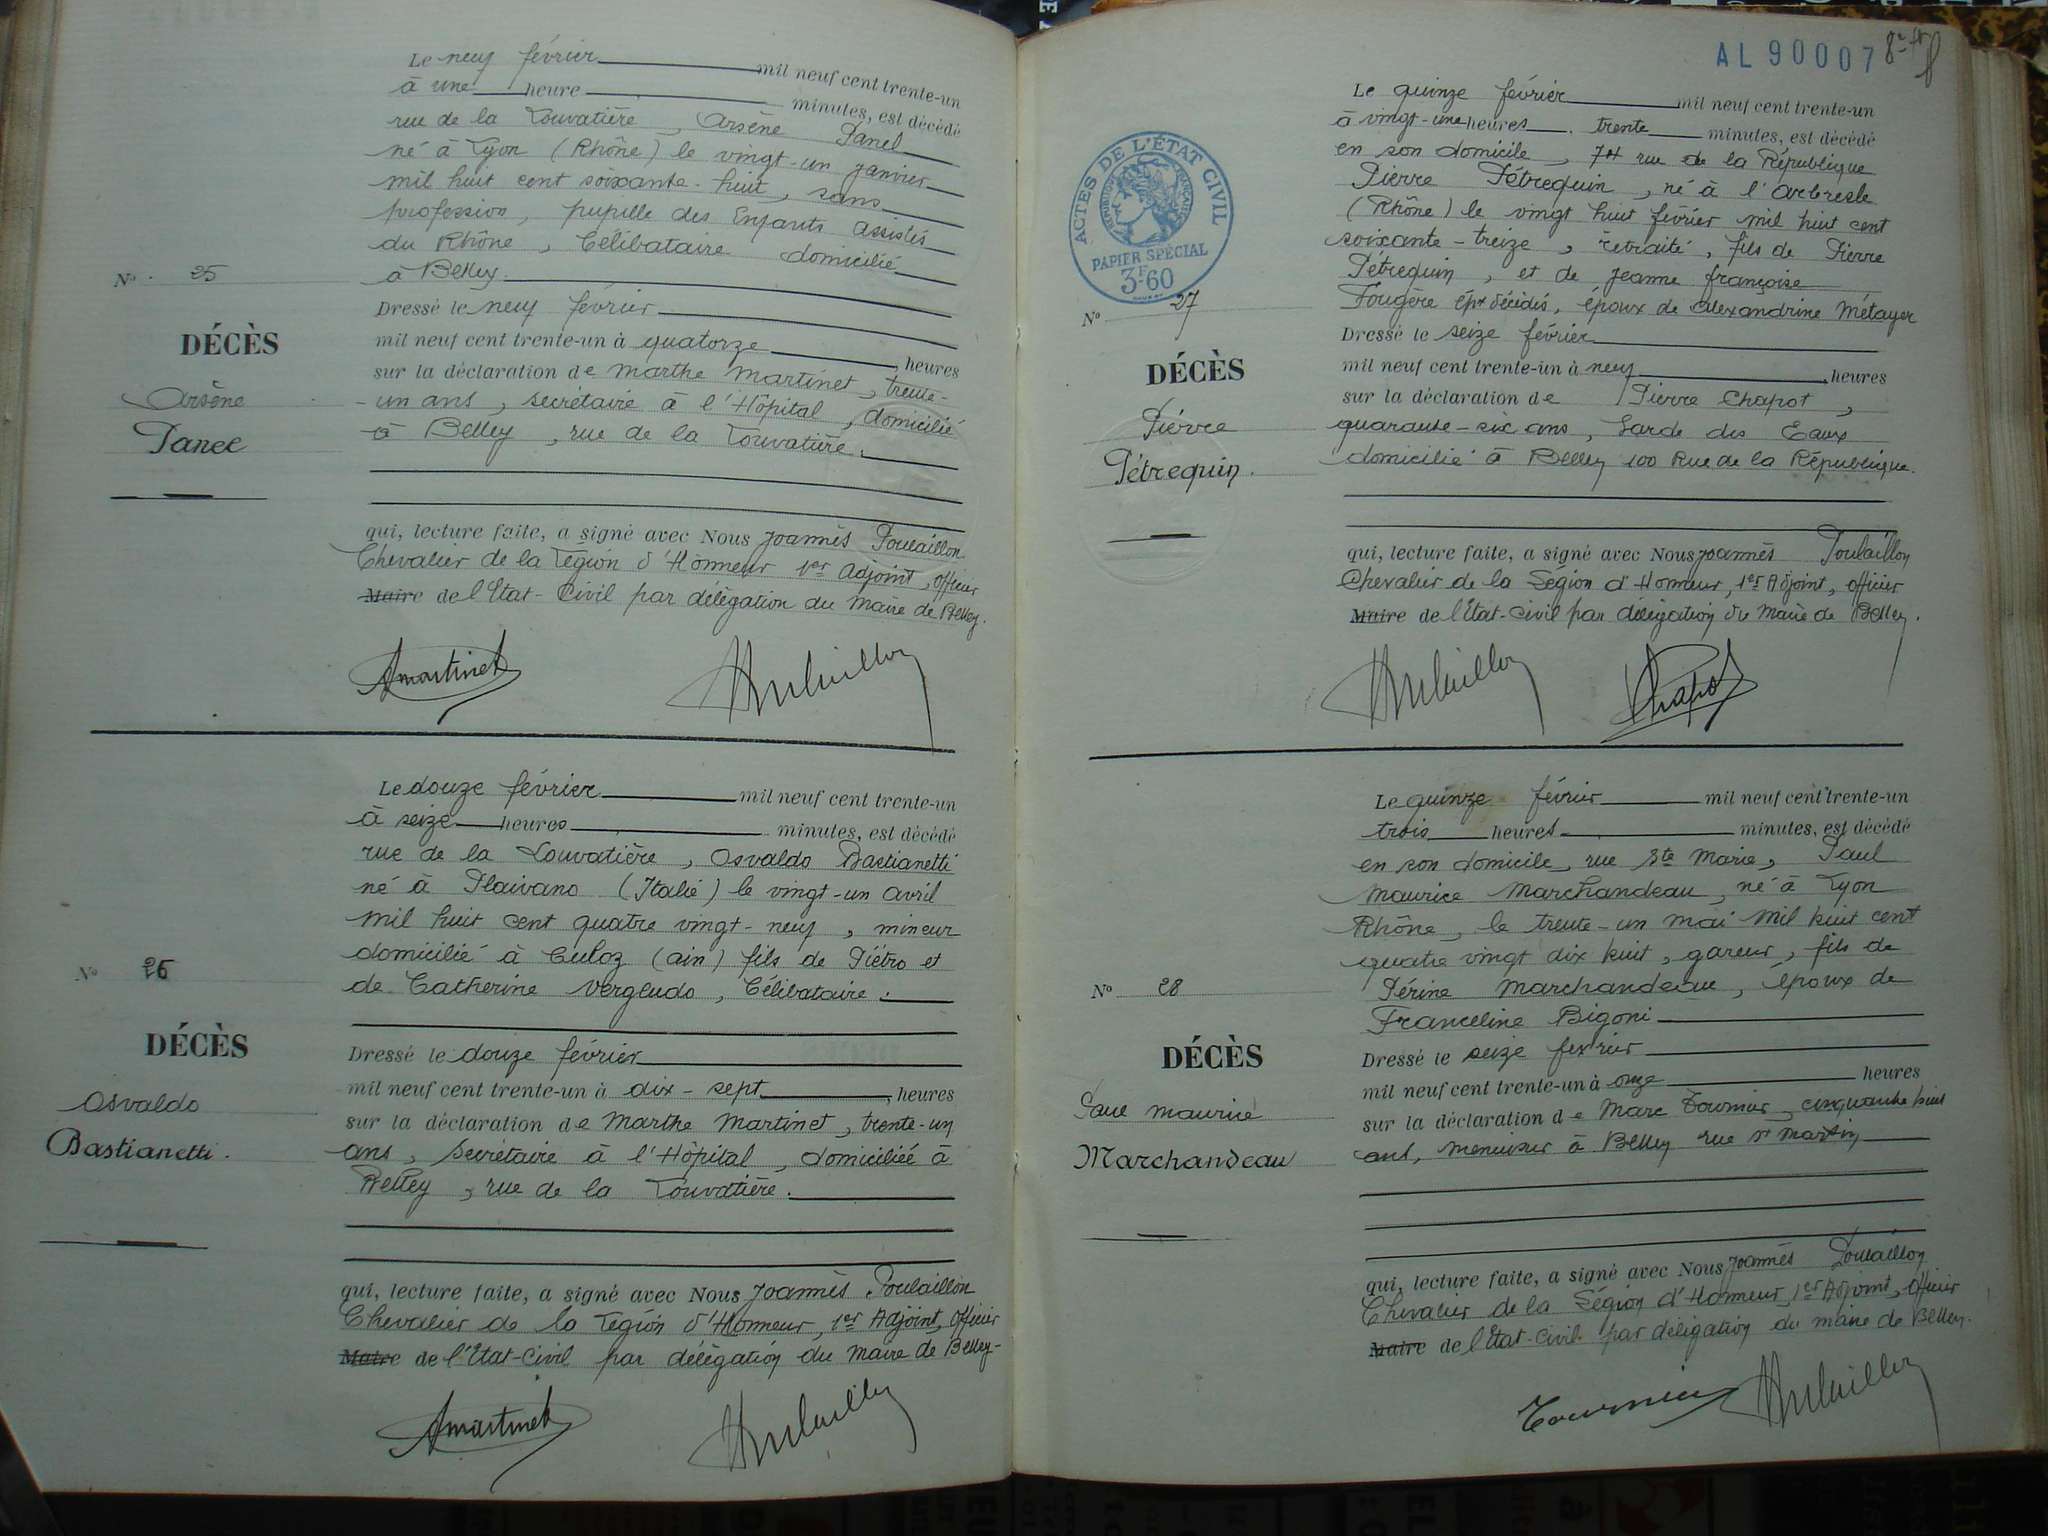 Le neuf février mil neuf cent trente-un
à une heure minutes, est décédé
rue de la Louvatière, Arsène Panel
né à Lyon (Rhône) le vingt-un janvier
mil huit cent soixante-huit, sans
profession, pupille des Enfants assistés
du Rhône, Célibataire domicilié
à Belley.
Nº 25
DÉCÈS
Arsène
Panel
Dressé le neuf février
mil neuf cent trente-un à quatorze heures
sur la déclaration de Marthe Martinet, trente-
un ans, secrétaire à l'Hôpital, domicilié
à Belley, rue de la Louvatière.
qui, lecture faite, a signé avec Nous Joannès Poulaillon
Chevalier de la Légion d'Honneur 1er adjoint, officier
Maire de l'Etat-Civil par délégation du Maire de Belley.
Martinet
Le douze février mil neuf cent trente-un
à seize heures minutes, est décédé
rue de la Louvatière, Osvaldo Bastianetti
né à Plaivano (Italie) le vingt-un avril
mil huit cent quatre vingt-neuf, mineur
domicilié à Culoz (ain) fils de Piétro et
de Catherine Vergendo, Célibataire.
Nº 26
DÉCÈS
Osvaldo
Bastianetti.
Dressé le douze février
mil neuf cent trente-un à dix-sept, heures
sur la déclaration de Marthe Martinet, trente-un
ans, Secrétaire à l'Hôpital, domiciliée à
Belley, rue de la Louvatière.
qui, lecture faite, a signé avec Nous Joannès Poulaillon
Chevalier de la Légion d'Honneur, 1er Adjoint, Officier
Maire de l'Etat-Civil par délégation du Maire de Belley-
Martinet
AL 90007
ACTES DE L'ÉTAT CIVIL
RÉPUBLIQUE FRANÇAISE
PAPIER SPÉCIAL
3F60
Le quinze février mil neuf cent trente-un
à vingt-une heures trente minutes, est décédé
en son domicile, 74 rue de la République
Pierre Pétrequin, né à l'Arbresle
(Rhône) le vingt huit février mil huit cent
soixante-treize, retraité, fils de Pierre
Pétrequin, et de Jeanne françoise
Fougère épx décédés, époux de Alexandrine Métayer
Nº 27
DÉCÈS
Pierre
Pétrequin.
Dressé le seize février
mil neuf cent trente-un à neuf, heures
sur la déclaration de Pierre Chapot,
quarante-six ans, Garde des Eaux
domicilié à Belley 100 Rue de la République.
qui, lecture faite, a signé avec Nous Joannès Poulaillon
Chevalier de la Légion d'Honneur, 1er Adjoint, officier
Maire de l'Etat-Civil par délégation du Maire de Belley.
Chapot
Le quinze février mil neuf cent trente-un
trois heures minutes, est décédé
en son domicile, rue Ste Marie, Paul
Maurice Marchandeau, né à Lyon
Rhône, le trente-un mai mil huit cent
quatre vingt dix huit, gareur, fils de
Périne Marchandeau, époux de
Franceline Bigoni
Nº 28
DÉCÈS
Paul Maurice
Marchandeau
Dressé le seize février
mil neuf cent trente-un à onze heures
sur la déclaration de Marc Tournier, cinquante huit
ans, menuisier à Belley rue St Martin
qui, lecture faite, a signé avec Nous Joannès Poulaillon
Chevalier de la Légion d'Honneur, 1er Adjoint, Officier
Maire de l'Etat-Civil par délégation du maire de Belley.
Tournier